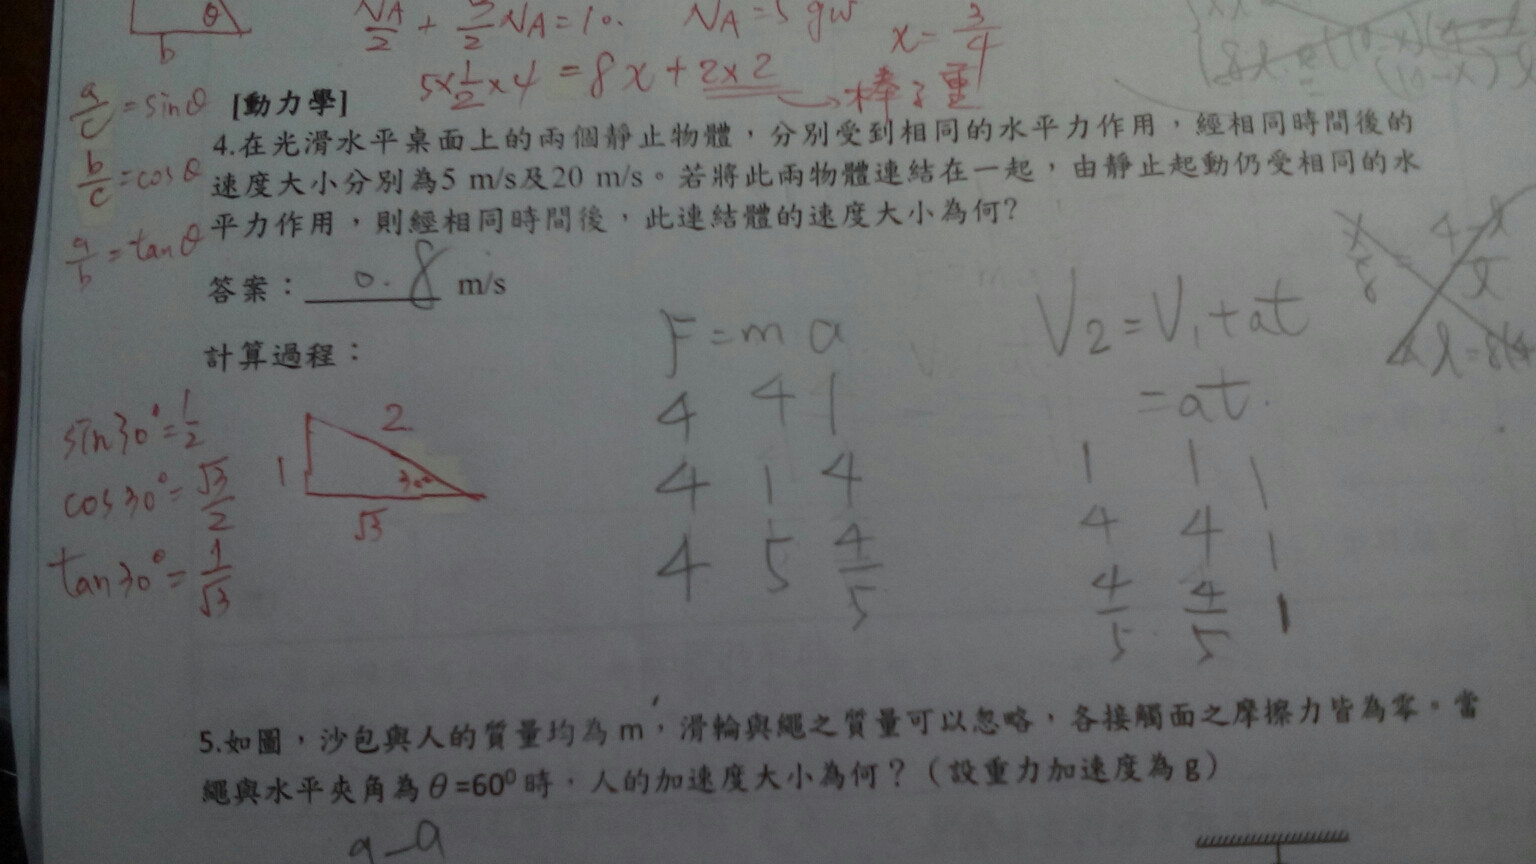 θ
b
NA/2 + 3/2 NA=10.
NA=5 gw
x=3/4
5×1/2×4 = 8x+2×2
棒子重
a/c=sinθ
[動力學]
4.在光滑水平桌面上的兩個靜止物體，分別受到相同的水平力作用，經相同時間後的
b/c=cosθ
速度大小分別為5 m/s及20 m/s。若將此兩物體連結在一起，由靜止起動仍受相同的水
a/b=tanθ
平力作用，則經相同時間後，此連結體的速度大小為何?
答案： 0.8 m/s
計算過程：
F=ma
4 4 1
4 1 4
4 5 4/5
V2=V1+at
=at.
1 1 1
4 4 1
4/5 4/5 1
sin30°=1/2
cos30°=√3/2
tan30°=1/√3
2
1
30°
√3
5.如圖，沙包與人的質量均為m，滑輪與繩之質量可以忽略，各接觸面之摩擦力皆為零。當
繩與水平夾角為θ=60⁰時，人的加速度大小為何？（設重力加速度為g）